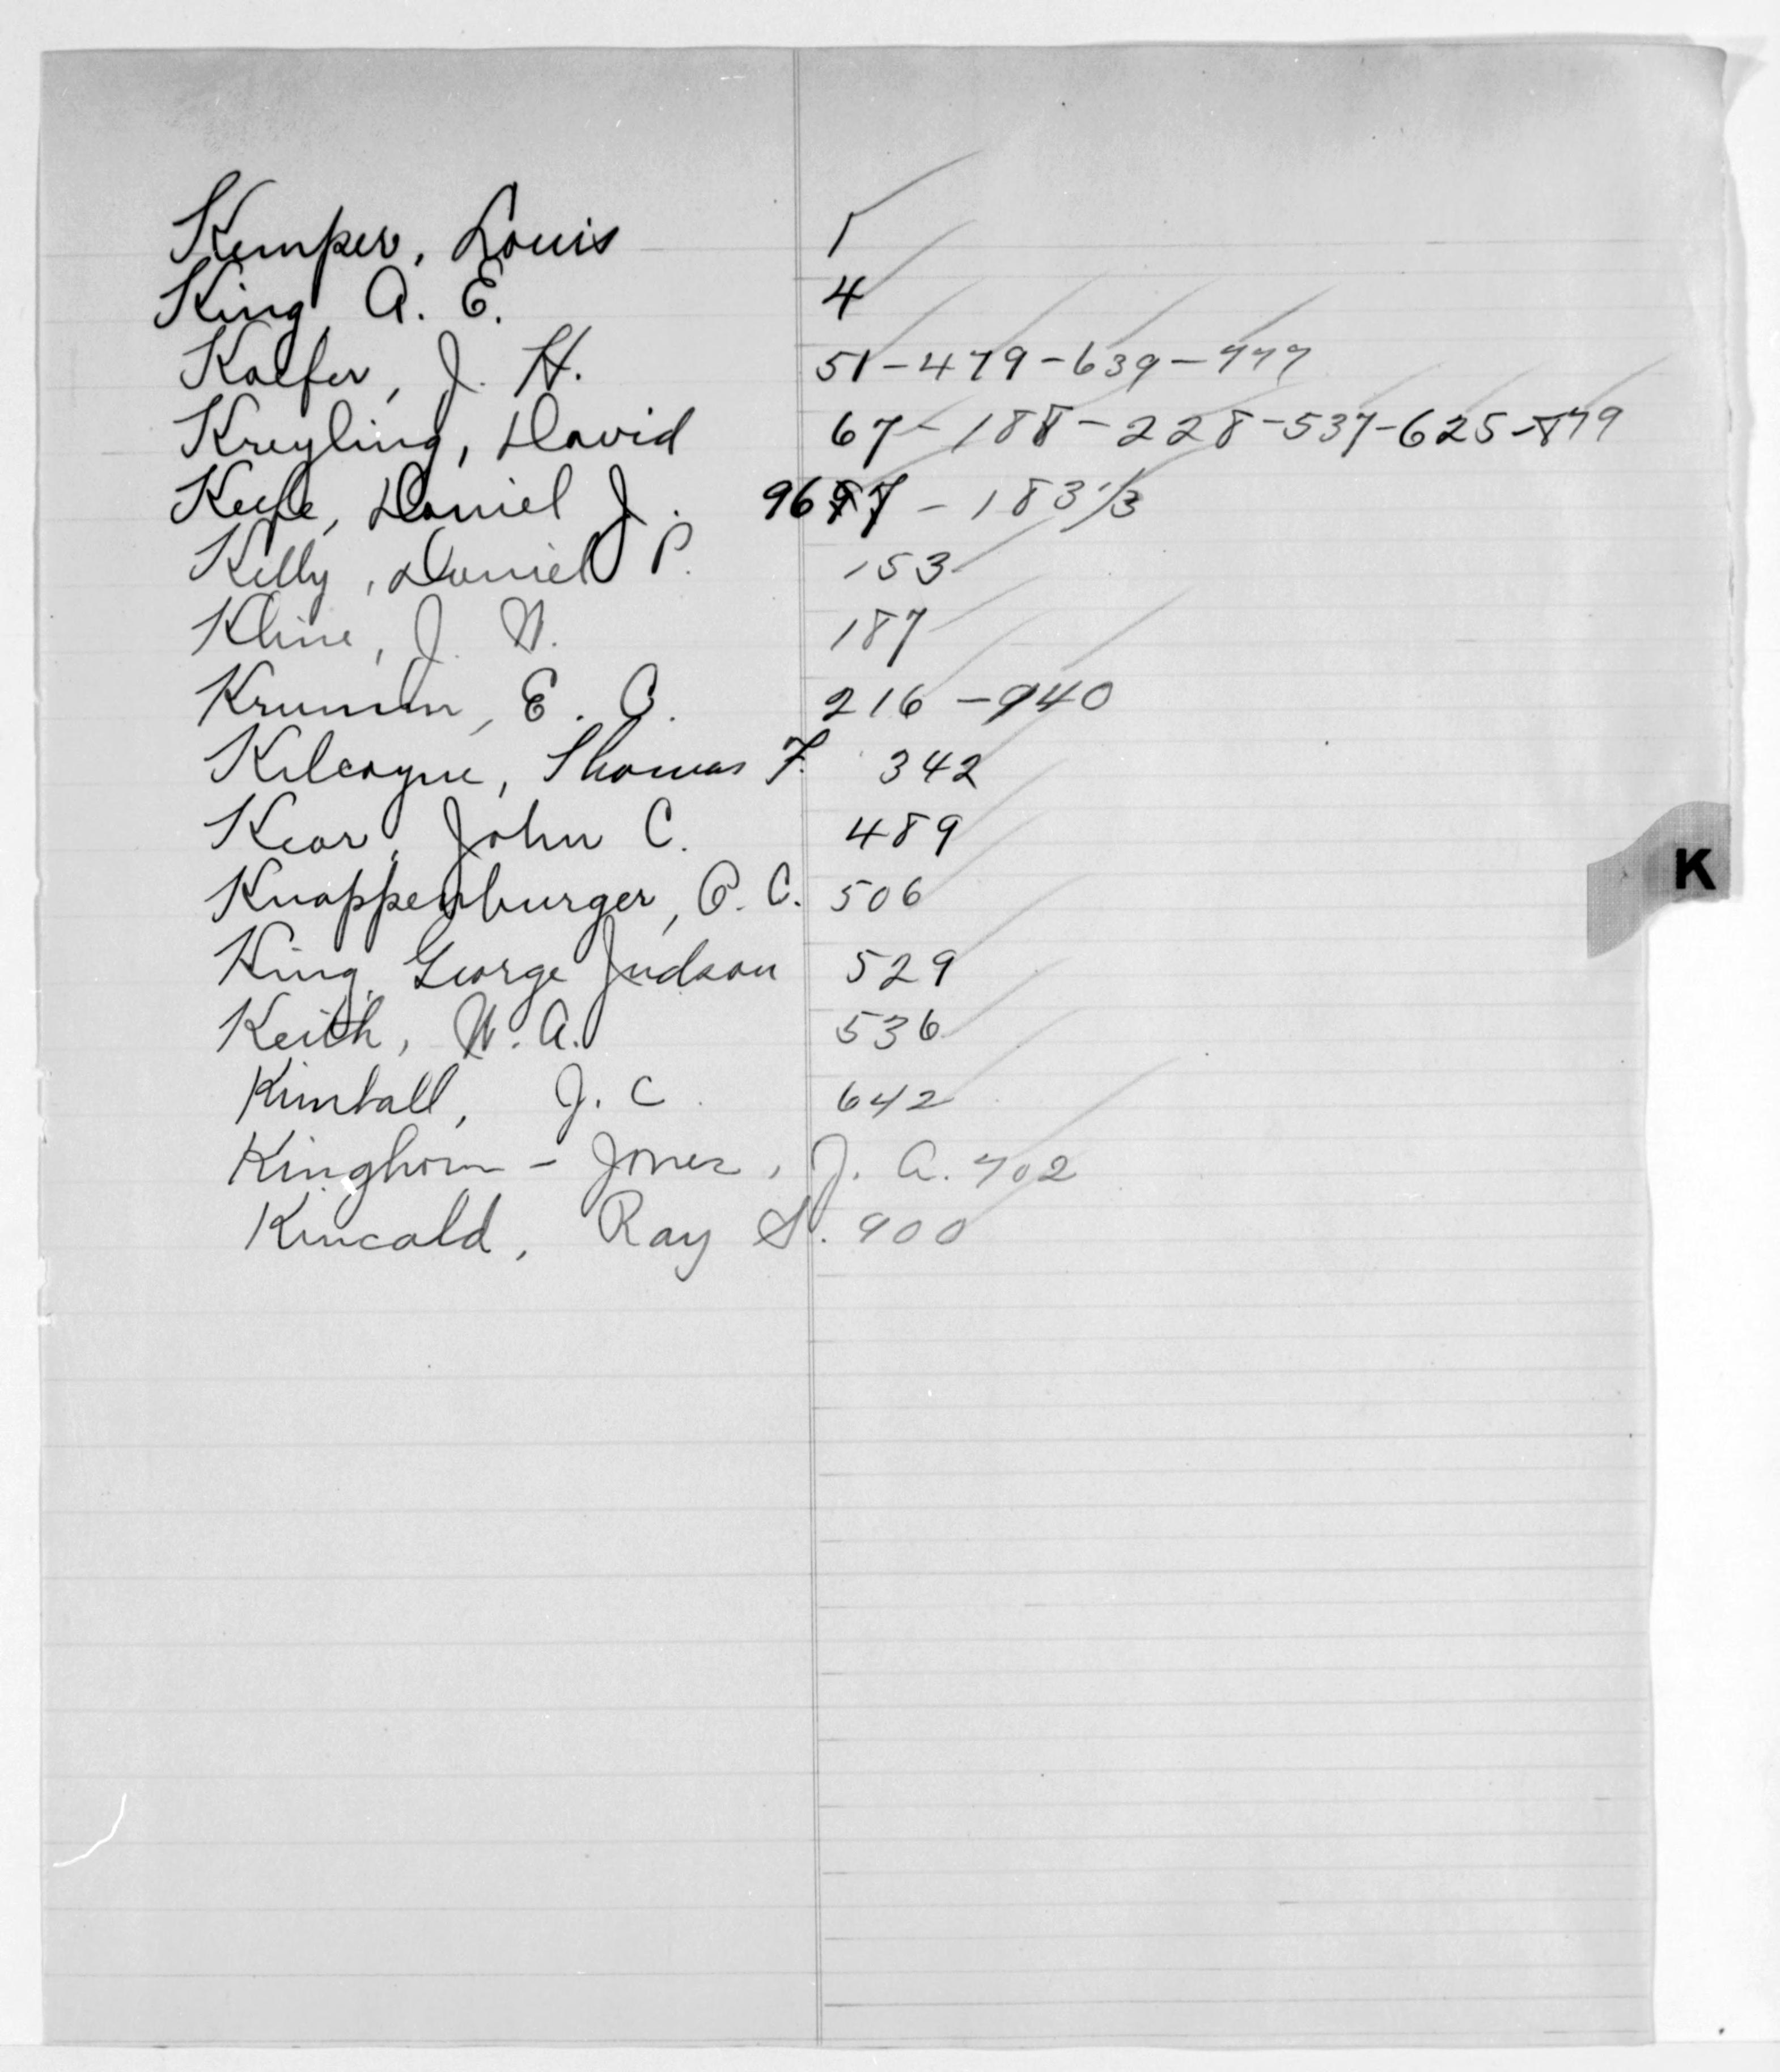 Kemper, Louis 1
King A. E. 4
Kaefer, J. H. 51-479-639-977
Kreyling, David 67-188-228-537-625-879
Keefe, Daniel J. 96 - 183 1/3
Kelly, Daniel P. 153
Kline, J. W. 187
Krumm, E. C. 216-940
Kilcoyne, Thomas F. 342
Kear, John C. 489
Knappenburger, P. C. 506
King, George Judson 529
Keith, W. A. 536
Kimball, J. C. 642
Kinghorn-Jones, J. A. 702
Kincald, Ray S. 900
K